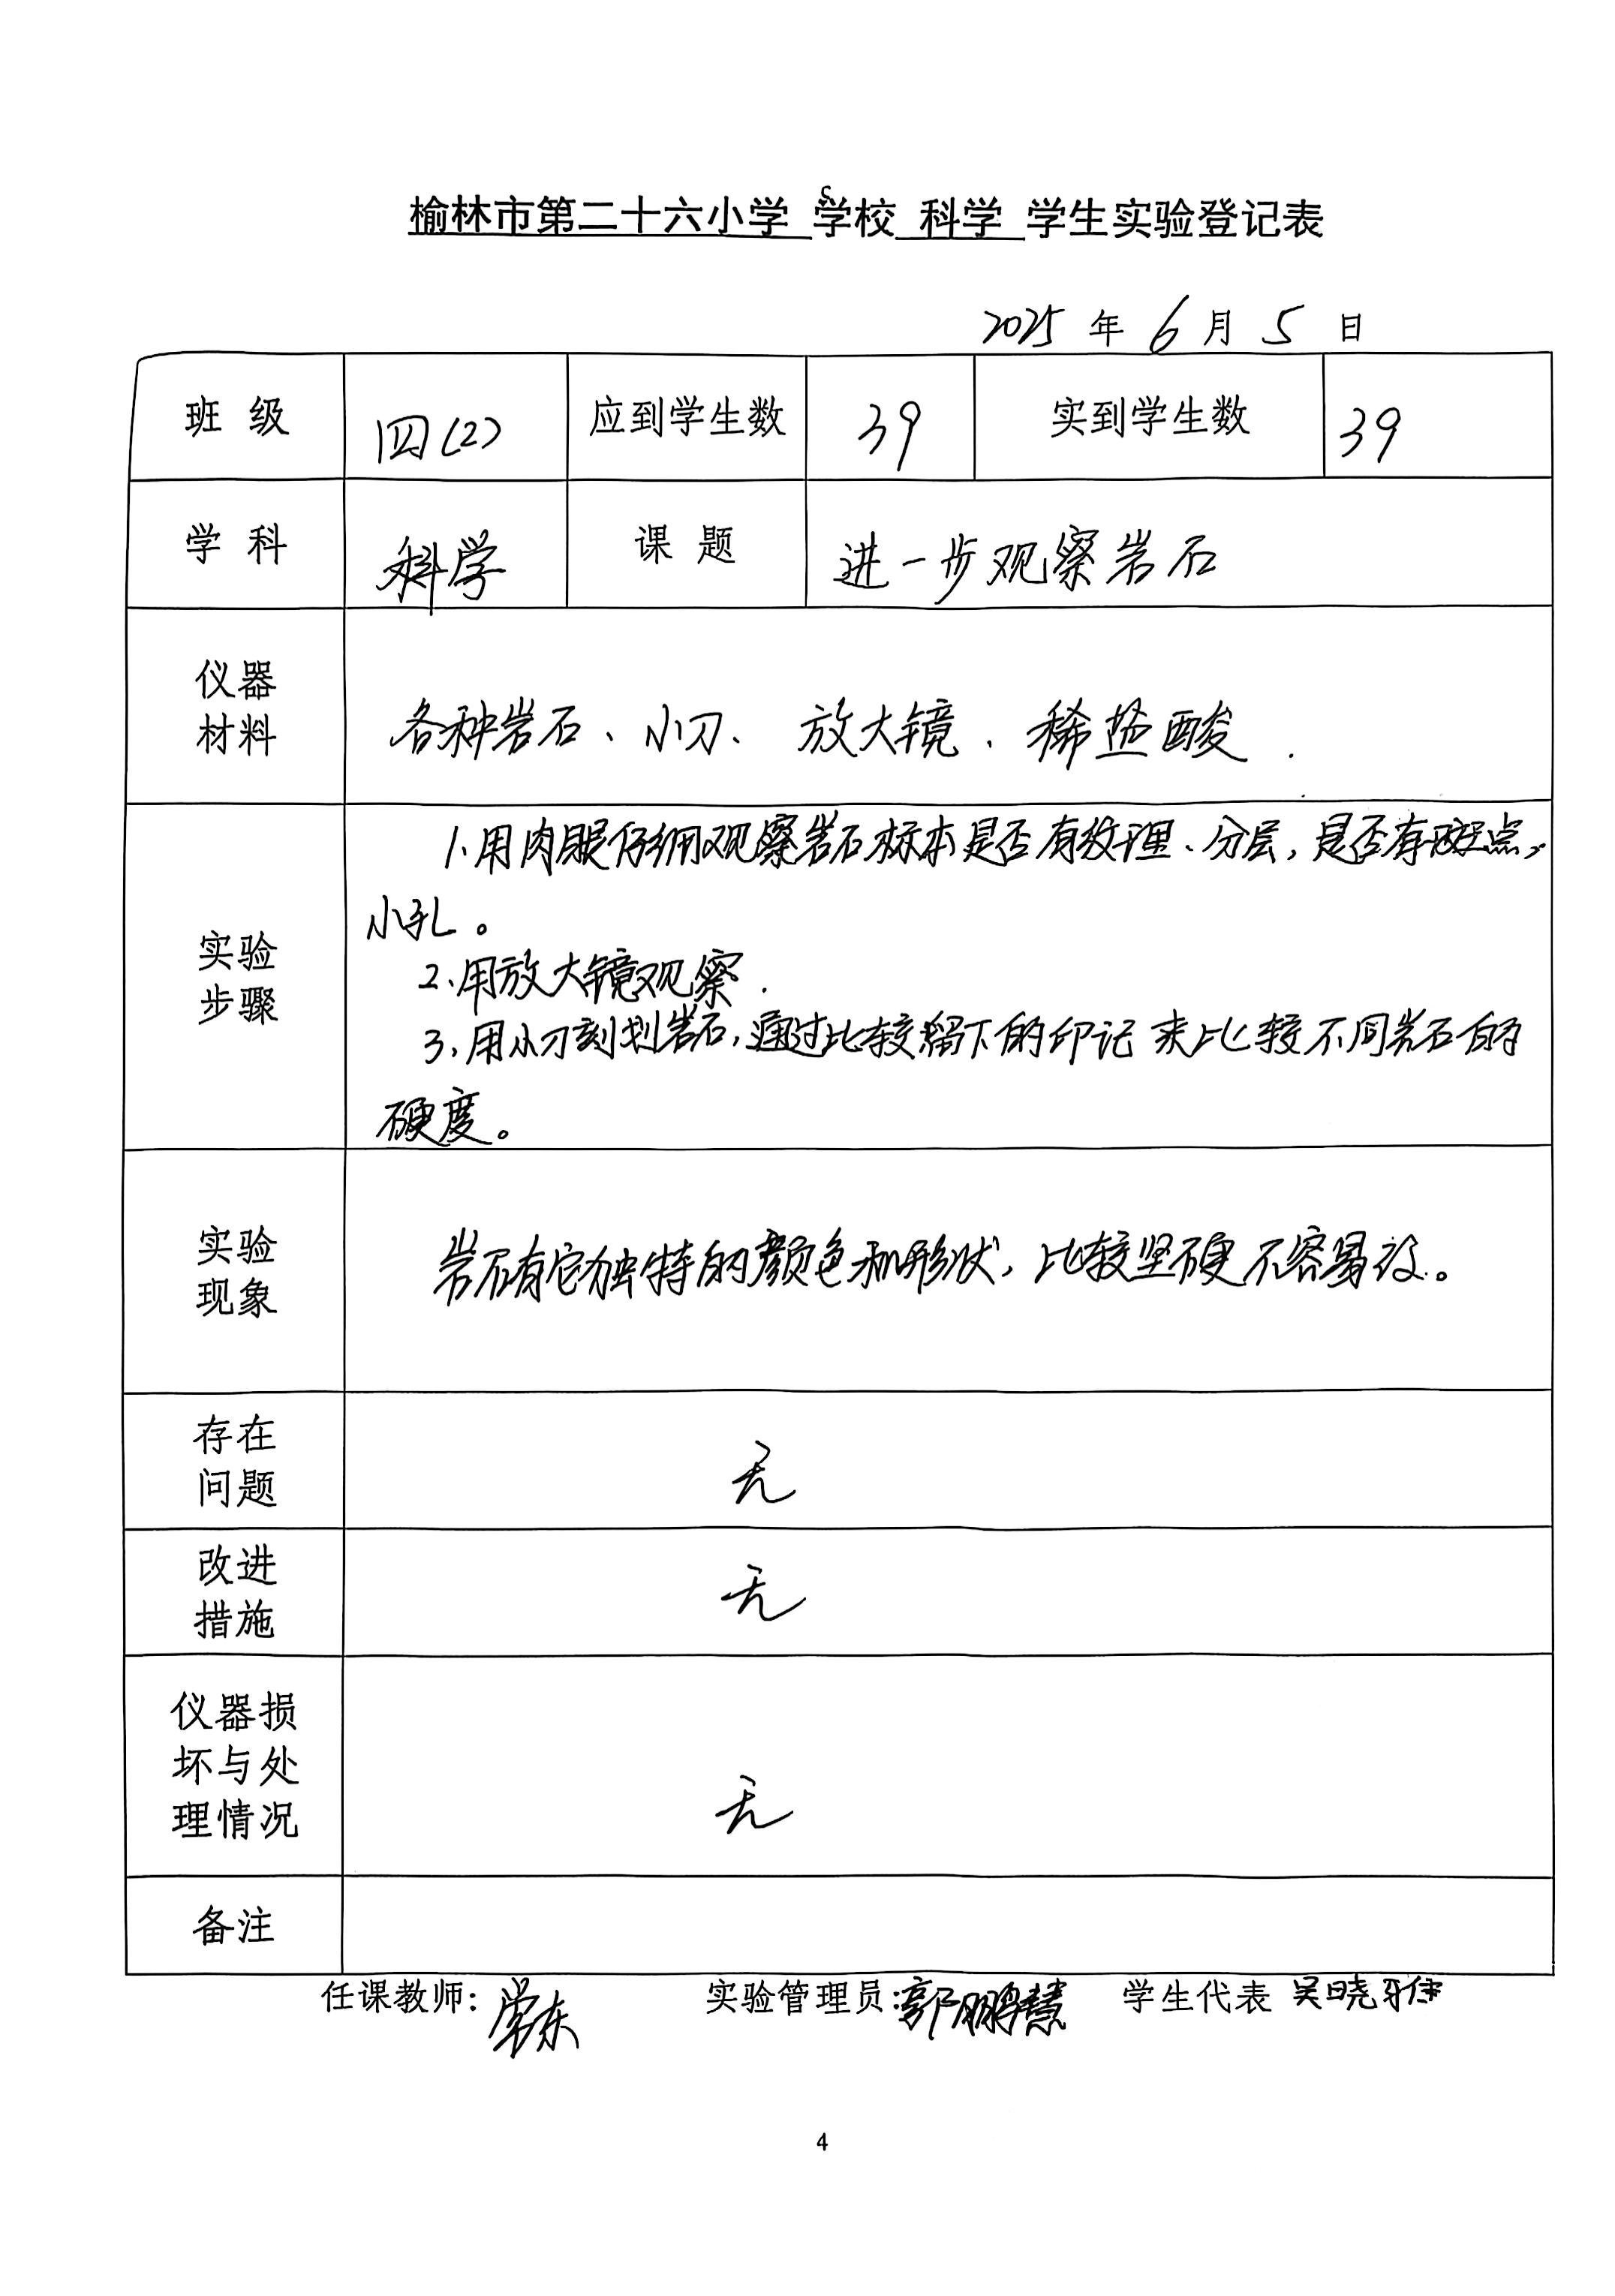 榆林市第二十六小学 学校 科学 学生实验登记表
2025 年 6 月 5 日
班 级 四(2) 应到学生数 39 实到学生数 39
学 科 科学 课 题 进一步观察岩石
仪器
材料
各种岩石、小刀、放大镜、稀盐酸.
实验
步骤
1.用肉眼仔细观察岩石标本是否有纹理、分层,是否有斑点,
小孔。
2.用放大镜观察.
3.用小刀刻划岩石,通过比较留下的印记来比较不同岩石的
硬度。
实验
现象
岩石有它独特的颜色和形状,比较坚硬不容易
存在
问题
无
改进
措施
无
仪器损
坏与处
理情况
无
备注
任课教师: 常东 实验管理员: 郭鹏慧 学生代表 吴晓
4